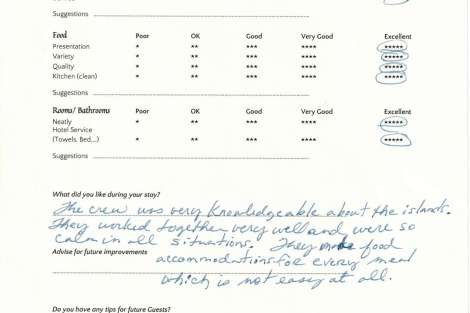 Suggestions
Food Poor OK Good Very Good Excellent
Presentation * ** *** **** *****
Variety * ** *** **** *****
Quality * ** *** **** *****
Kitchen (clean) * ** *** **** *****
Suggestions
Rooms/ Bathrooms Poor OK Good Very Good Excellent
Neatly * ** *** **** *****
Hotel Service
(Towels, Bed,..) * ** *** **** *****
Suggestions
What did you like during your stay?
The crew was very knowledgeable about the islands.
They worked together very well and were so
calm in all situations. They made food
Advise for future improvements
accommodations for every meal
which is not easy at all.
Do you have any tips for future Guests?